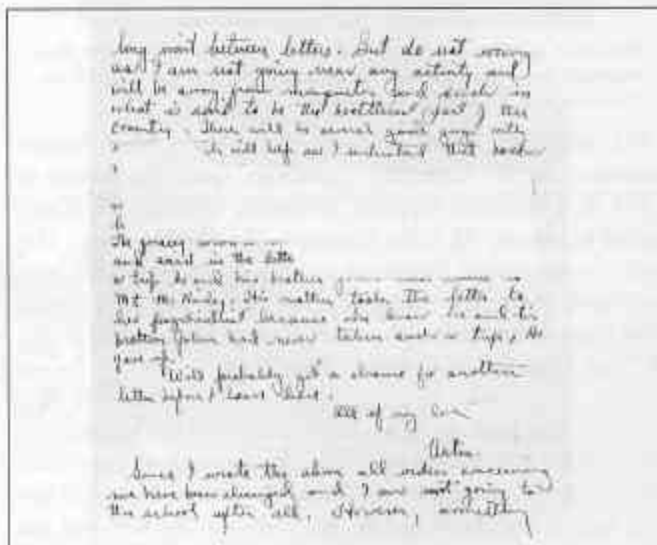 long wait between letters. But do not worry
as I am not going near any activity and
will be away from mosquitos and such in
what is said to be the healthiest part of the
country. There will be several good guys with
it will help as I understand that
The
and said in the letter
a trip he and his brother
Mt McKinley. His mother took the letter to
her psychiatrist because she knew he and his
brother John had never taken such a trip. He
gave up.
Will probably get a chance for another
letter before I leave here.
All of my love
Since I wrote the above all orders concerning
me have been changed and I am not going to
the school after all. However, something